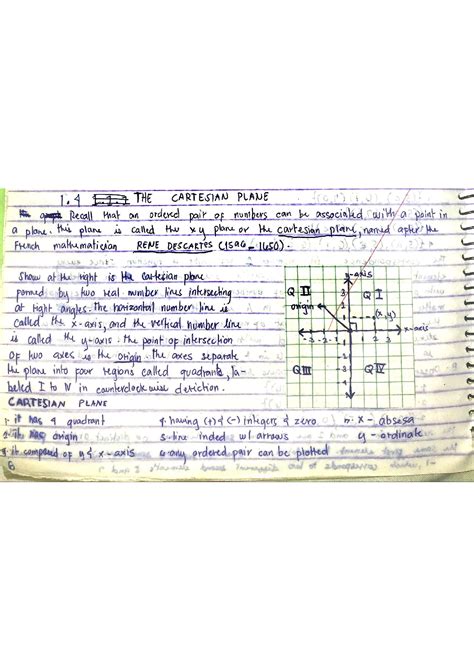 1.4 THE CARTESIAN PLANE
Recall that an ordered pair of numbers can be associated with a point in
a plane. this plane is called the xy plane or the cartesian plane, named after the
French mathematician RENE DESCARTES (1596 - 1650).
Show at the right is the Cartesian plane
formed by two real number lines intersecting
at right angles. The horizontal number line is
called the x-axis, and the vertical number line
is called the y-axis. the point of intersection
of two axes is the origin. the axes separate
the plane into four regions called quadrants, la-
beled I to IV in counterclockwise dirction.
y-axis
Q II
Q I
origin
(x, y)
x-axis
-3 -2 -1
1 2 3
Q III
Q IV
CARTESIAN PLANE
1. it has 4 quadrant
2. it has origin
3. it composed of y & x-axis
4. having (+) & (-) integers & zero
5. line inded w/ arrows
6. any ordered pair can be plotted
7. x - absesa
y - ordinate